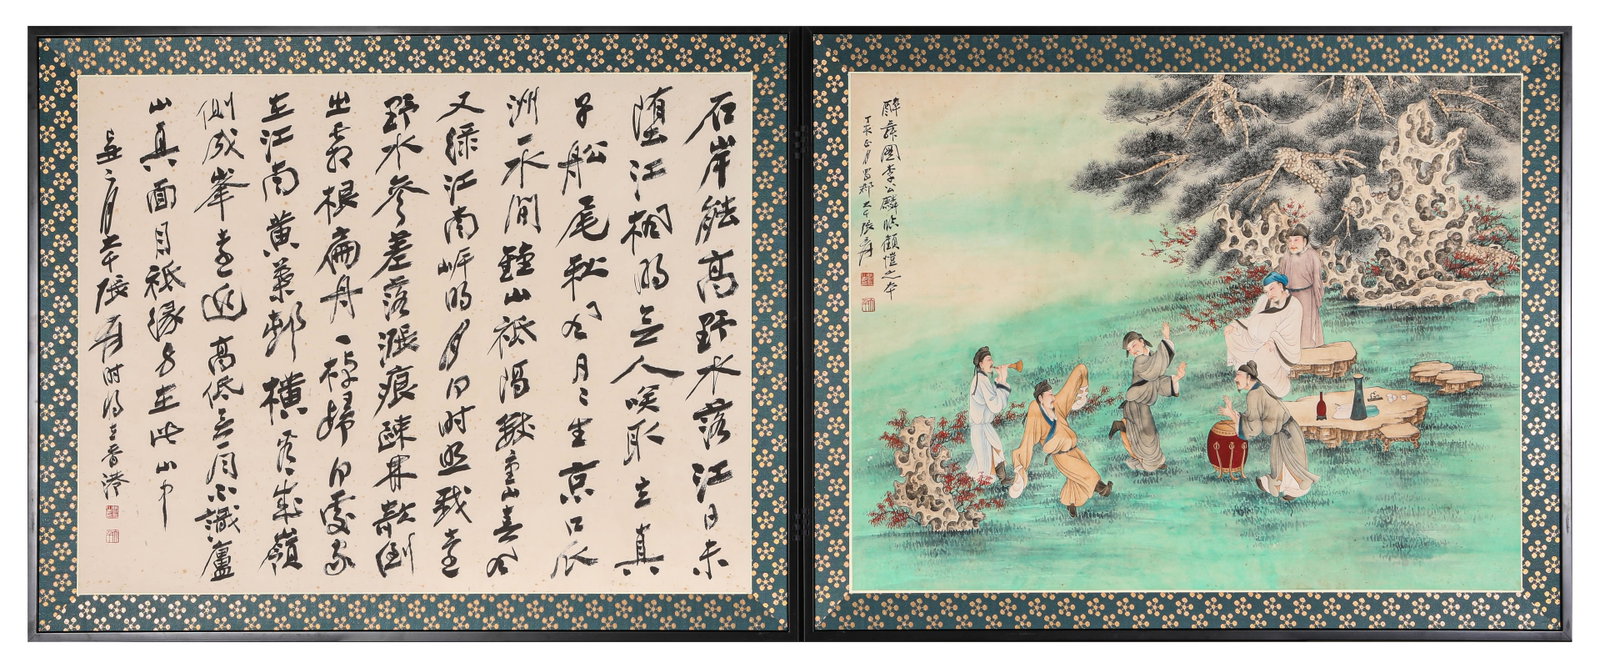 醉舞圖李公麟臨顧愷之本
丁亥正月蜀郡大千張爰
石岸能高野水落江日未
墮江楓明無人唤取主真
子船尾秋風月〻生京口瓜
洲一水間鐘山祗隔數重山春風
又綠江南岸明月何時照我還
野水參差落漲痕疎林欹倒
出霜根扁舟一棹歸何處家
在江南黃葉邨橫看成嶺
側成峯遠近高低無一同不識廬
山真面目祗緣身在此山中
二月大千張爰時香港